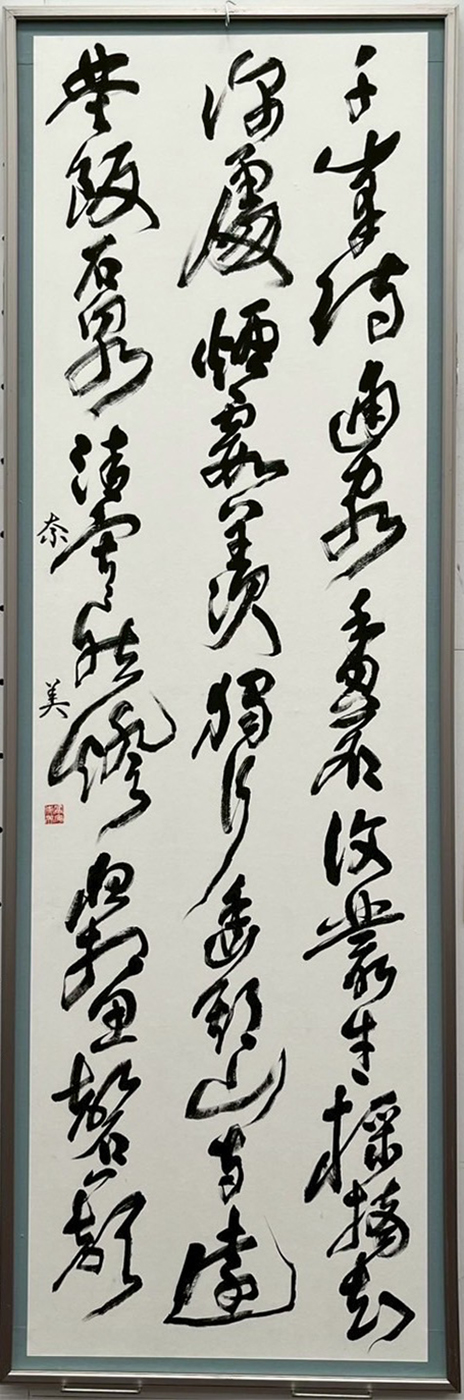 千峯待逋客香茗復叢生採摘知
深處煙霞羨獨行幽期山寺遠
埜飯石泉清寂々然燈夜相思磬一聲
奈美